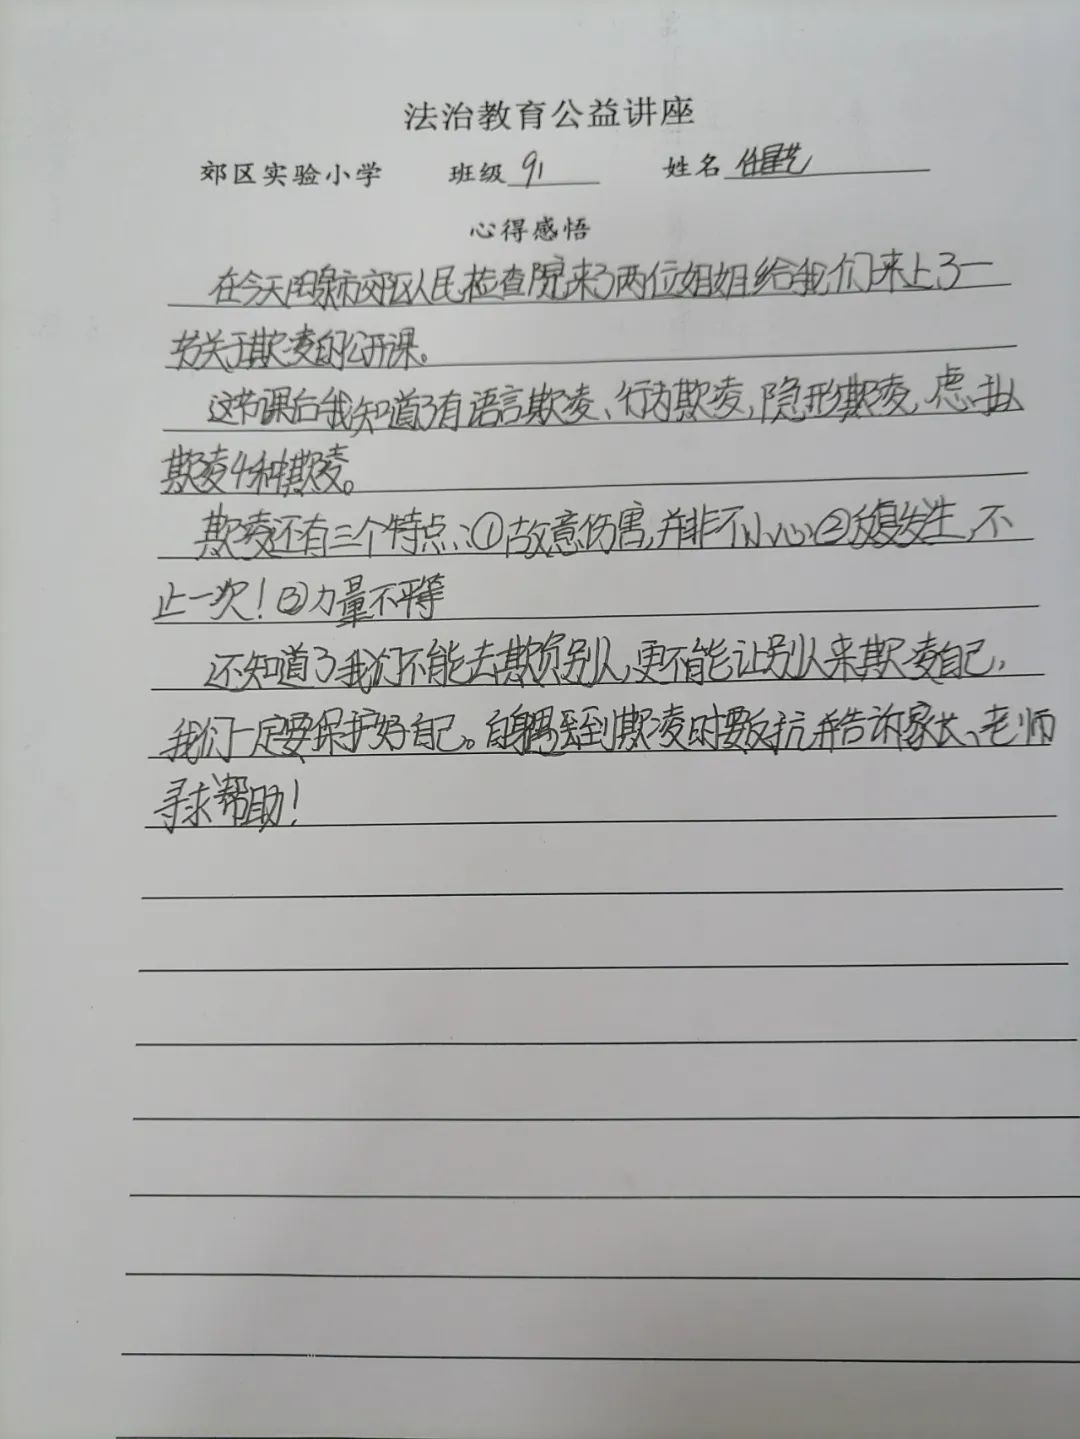 法治教育公益讲座
郊区实验小学 班级 91 姓名
心得感悟
在今天阳泉市郊区人民检查院来了两位姐姐给我们来上了一
节关于欺凌的公开课。
这节课后我知道了有语言欺凌、行为欺凌,隐形欺凌,虚拟
欺凌4种欺凌。
欺凌还有三个特点:①故意伤害,并非不小心②反复发生,不
止一次!③力量不平等
还知道了我们不能去欺负别人,更不能让别人来欺凌自己,
我们一定要保护好自己。自身遇到欺凌时要反抗并告诉家长、老师
寻求帮助!